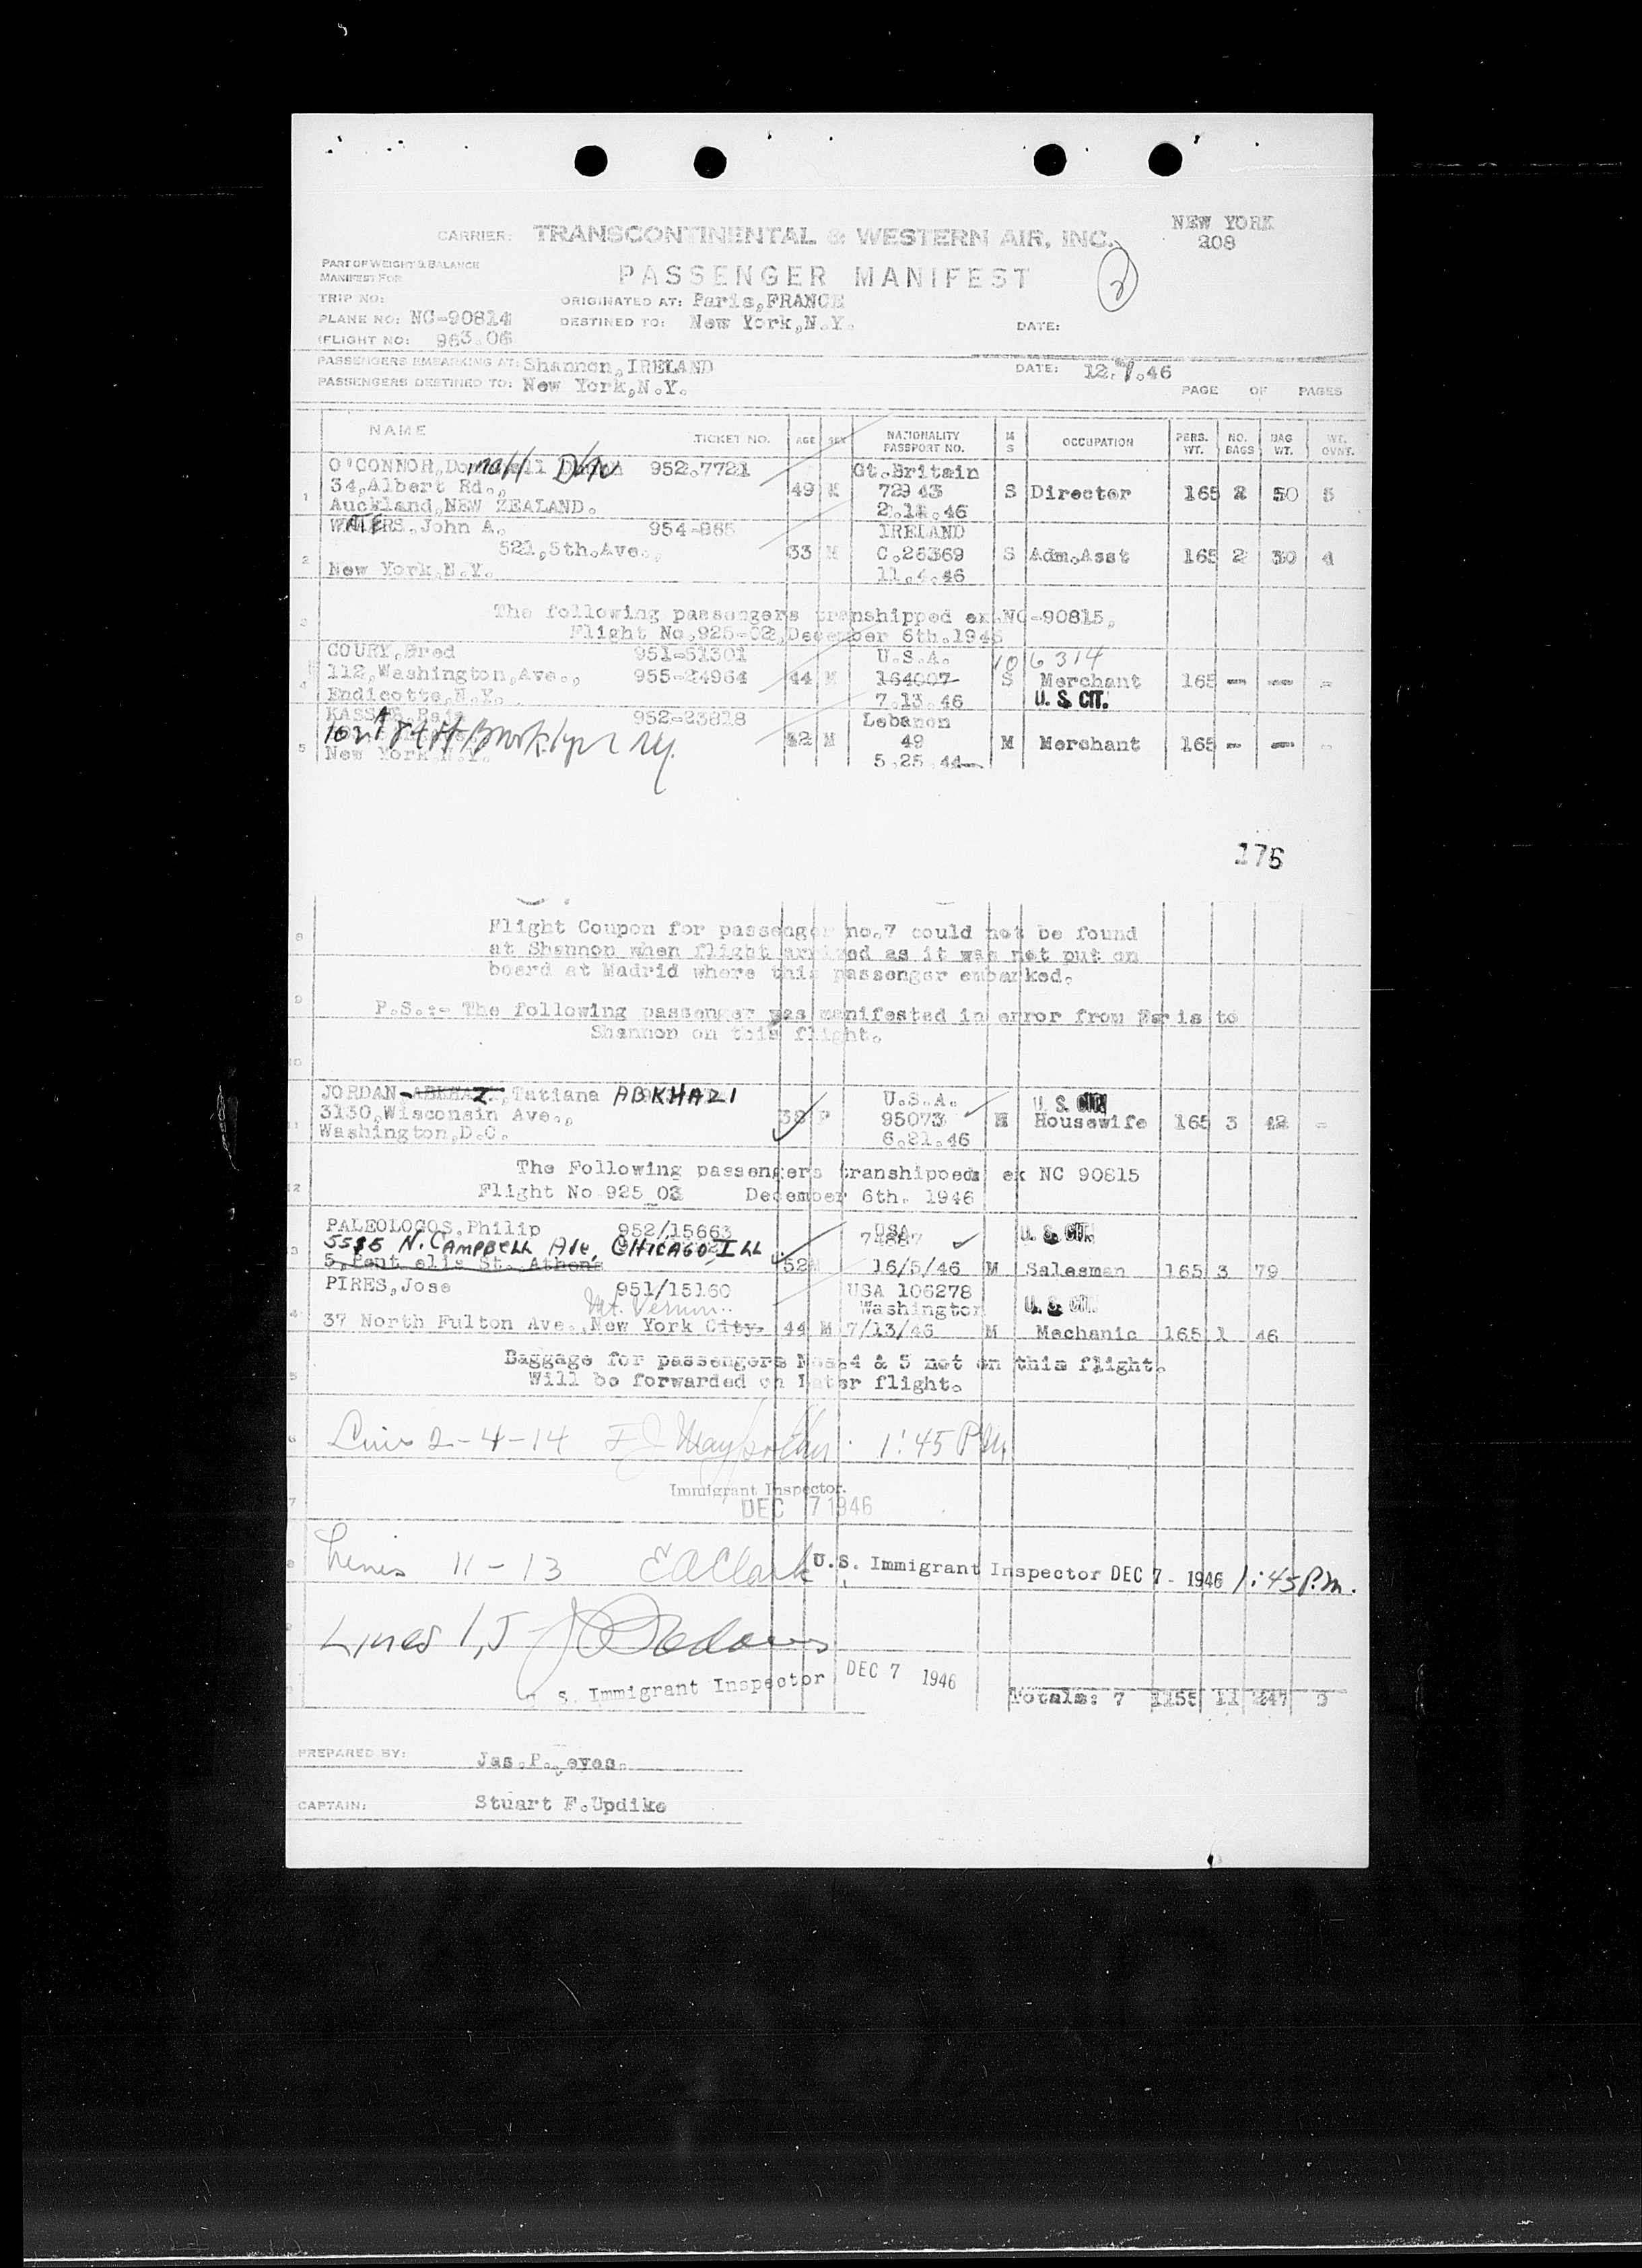 NEW YORK
208
CARRIER: TRANSCONTINENTAL & WESTERN AIR, INC.
PART OF WEIGHT & BALANCE
MANIFEST FOR
PASSENGER MANIFEST
2
TRIP NO:
ORIGINATED AT: Paris, FRANCE
PLANE NO: NC-90814
DESTINED TO: New York, N.Y.
DATE:
FLIGHT NO: 963.06
PASSENGERS EMBARKING AT: Shannon, IRELAND
DATE: 12.7.46
PASSENGERS DESTINED TO: New York, N.Y.
PAGE OF PAGES
NAME TICKET NO. AGE SEX NATIONALITY PASSPORT NO. M S OCCUPATION PERS. WT. NO. BAGS BAG WT. WT. OVWT.
O'CONNOR, 952.7721 Gt. Britain
34, Albert Rd., 49 M S Director 165 2 50 5
1
Auckland, NEW ZEALAND.
WATERS, John A. 954-865 IRELAND
521, 5th. Ave., 33 M C.26369 S Adm. Asst 165 2 30 4
2
New York, N.Y. 11.4.46
The following passengers transhipped ex NC-90815,
3
Flight No. 925-02, December 6th. 1946
COURY, Fred 951-51301 U.S.A. 106314
112, Washington, Ave., 955-24964 44 M 164007 S Merchant 165 -- -- -
4
Endicotte, N.Y. 7.13.46 U. S. CIT.
KASSAB, Raja 952-23818 Lebanon
102 84 St Brooklyn NY.
42 M 49 M Merchant 165 - -- -
5
New York, N.Y. 5.25.44
176
8
Flight Coupon for passenger no.7 could not be found
at Shannon when flight arrived as it was not put on
board at Madrid where this passenger embarked.
9
P.S.:- The following passenger was manifested in error from Paris to
Shannon on this flight.
10
JORDAN-ABKHAZ, Tatiana ABKHAZI U.S.A. U. S. CIT.
3130, Wisconsin Ave., 38 F 95073 M Housewife 165 3 42 -
11
Washington, D.C. 6.21.46
The Following passengers transhipped ex NC 90815
12
Flight No 925 02 December 6th. 1946
PALEOLOGOS, Philip 952/15663 USA U. S. CIT.
N. CAMPBELL Ave, CHICAGO ILL
13
St. Athens 52 M 16/5/46 M Salesman 165 3 79
PIRES, Jose 951/15160 USA 106278
Mt. Vernon Washington U. S. CIT.
4
37 North Fulton Ave., New York City. 44 M 7/13/46 M Mechanic 165 1 46
Baggage for passengers Nos.4 & 5 not on this flight.
5
Will be forwarded on later flight.
6
2-4-14 1:45 PM
Immigrant Inspector.
7
DEC 7 1946
Lines 11-13 E A Clark U.S. Immigrant Inspector DEC 7 - 1946 1:45 P.m.
Lines 1,5
U. S. Immigrant Inspector DEC 7 1946
Totals: 7 1155 11 247 9
PREPARED BY: Jas. P.
CAPTAIN: Stuart F. Updike